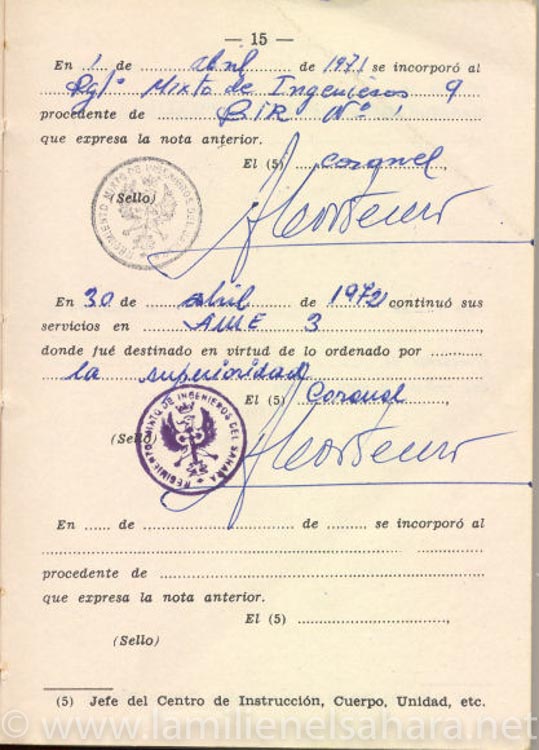 — 15 —
En 1 de abril de 1971 se incorporó al
Rgtº Mixto de Ingenieros 9
procedente de BIR Nº 1
que expresa la nota anterior.
El (5) coronel,
(Sello)
REGIMIENTO MIXTO DE INGENIEROS DEL SAHARA
En 30 de abril de 1972 continuó sus
servicios en AME 3,
donde fué destinado en virtud de lo ordenado por
la superioridad
El (5) Coronel,
(Sello)
REGIMIENTO MIXTO DE INGENIEROS DEL SAHARA
En ...... de .......................... de ........ se incorporó al
procedente de
que expresa la nota anterior.
El (5) ..............................,
(Sello)
(5) Jefe del Centro de Instrucción, Cuerpo, Unidad, etc.
© www.lamilienelsahara.net